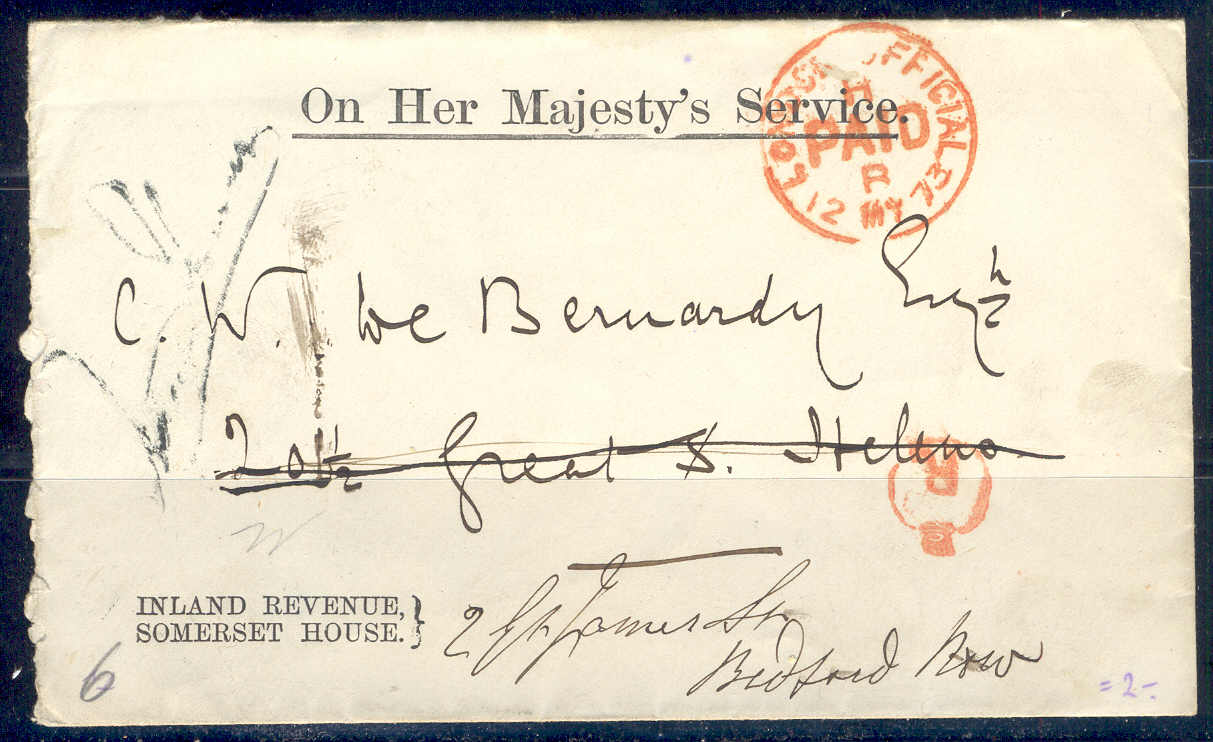 On Her Majesty's Service.
LONDON OFFICIAL
PAID
R
12 MY 73
C. W. De Bernardy Esqr
20½ Great S. Helens
R
INLAND REVENUE,
SOMERSET HOUSE.}
2 Gt James St
Bedford Row
6
=2=